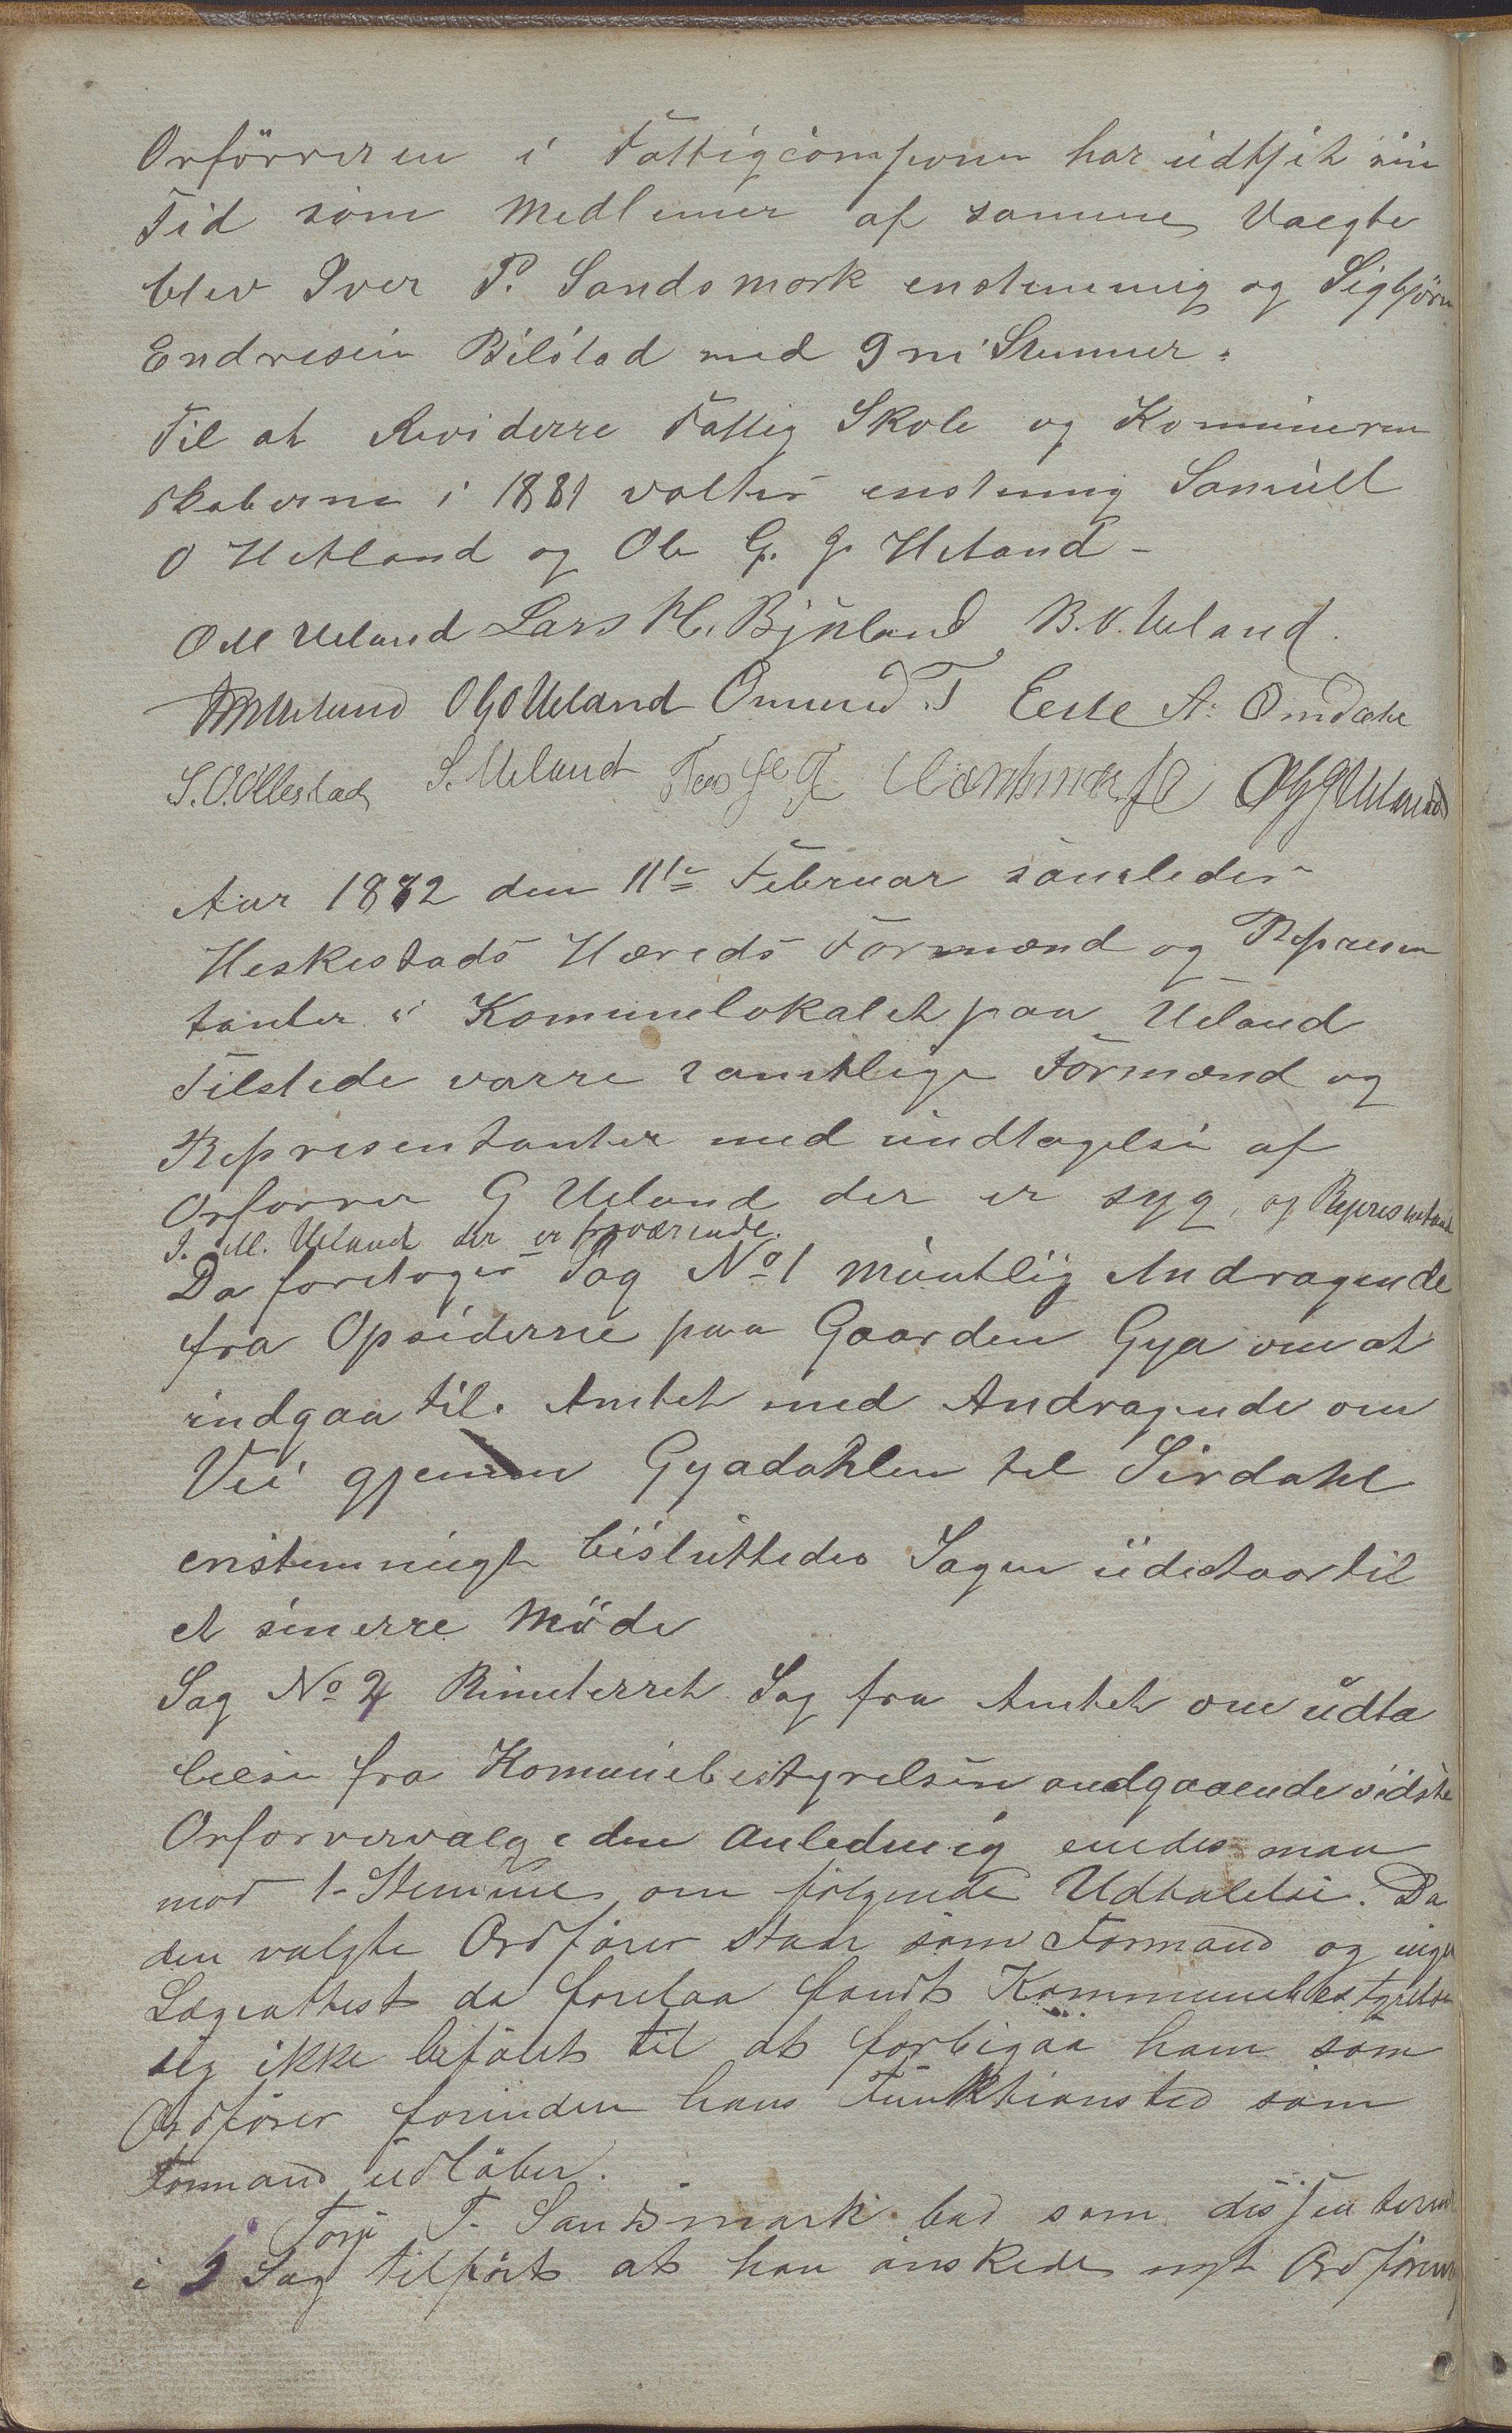 Orförreren i Fattigcomponen har udtjit sin
Tid som Medlemer af samme, Valgte
blev Iver P. Sandsmork enstemmig og Sigbjörn
Endresen Bilstad med 9 ni Stemmer.
Til at Reviderre Fattig Skole og Kommuneren
skaberne i 1881 valtes enstemig Samuell
O Uetland og Ole G. G. Ueland -
O M Ueland Lars H. Bjuland B. V. Ueland.
Ueland O G O Ueland Omund T Eeste A. Omdahl
S. O. Ollestad S. Ueland Torje T Santsmark O G G Ueland
Aar 1882 den 11te Februar samledes
Heskestads Hæreds Formænd og Represen
tanter i Komunelokalet paa Ueland
Tilstede varre samtlige Formænd og
Representanter med undtagelse af
Orforrer G Ueland der er syg, og Representant
I. M. Ueland der er fraværende.
Da foretoges Sag No 1 Muntlig Andragende
fra Opsiderne paa Gaarden Gya om at
indgaa til Amtet med Andragende om
Vei gjennem Gyadahlen til Sirdahl
enstemmigt beslutteder Sagen udestaar til
et sinerre Möde
Sag No 2 Rimeterret Sag fra Amtet om udta
lelse fra Komunebestyrelsen andgaaende sidste
Orforrervalg i den Anledning enedes man
mod 1 Stemme om følgende Udtalelse. Da
den valgte Ordfører staar som Formand og ingen
Lægeattest da forelaa fandt Kommunebestyrelsen
sig ikke beføiet til at forbigaa ham som
Ordfører forinden hans Funktionstid som
Formand udløber.
Torje T. Santsmark bad som dissenterende
i Sag tilført at han ønskede nyt Ordførerv